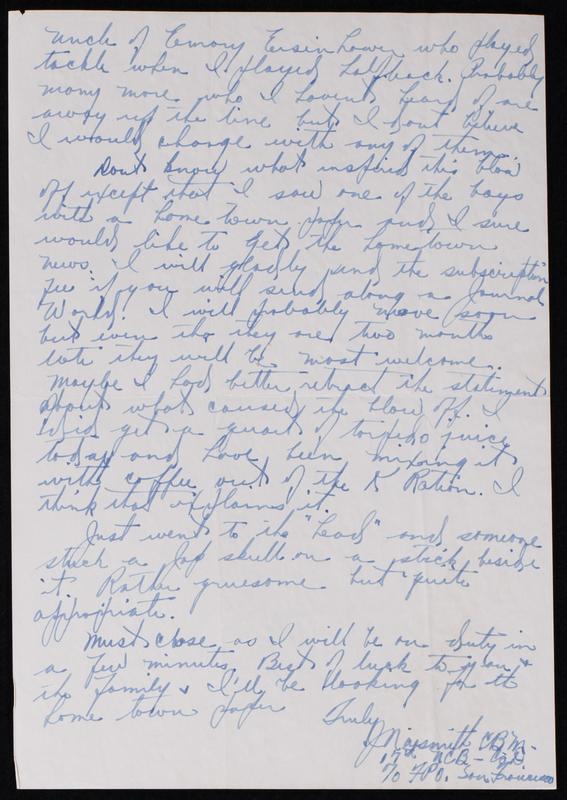 Uncle of Emory Eisenhower who played
tackle when I played halfback. Probably
many more who I havent heard of are
away up the line but I dont believe
I would change with any of them.
Dont know what inspired this blow
off except that I saw one of the boys
with a home town paper and I sure
would like to get the home town
news. I will gladly send the subscription
fee if you will send along a Journal
World. I will probably move soon
but even tho they are two months
late they will be most welcome.
Maybe I had better retract the statement
about what caused the blow off. I
did get a quart of torpedo juice
today and have been mixing it
with coffee out of the K Ration. I
think that explains it.
Just went to the "head" and someone
stuck a Jap skull on a stick beside
it. Rather gruesome but quite
appropriate.
Must close as I will be on duty in
a few minutes. Best of luck to you &
the family & I'll be looking for the
home town paper
Truly
J Naismith CBM -
17th NCB -
℅ FPO. San Francisco